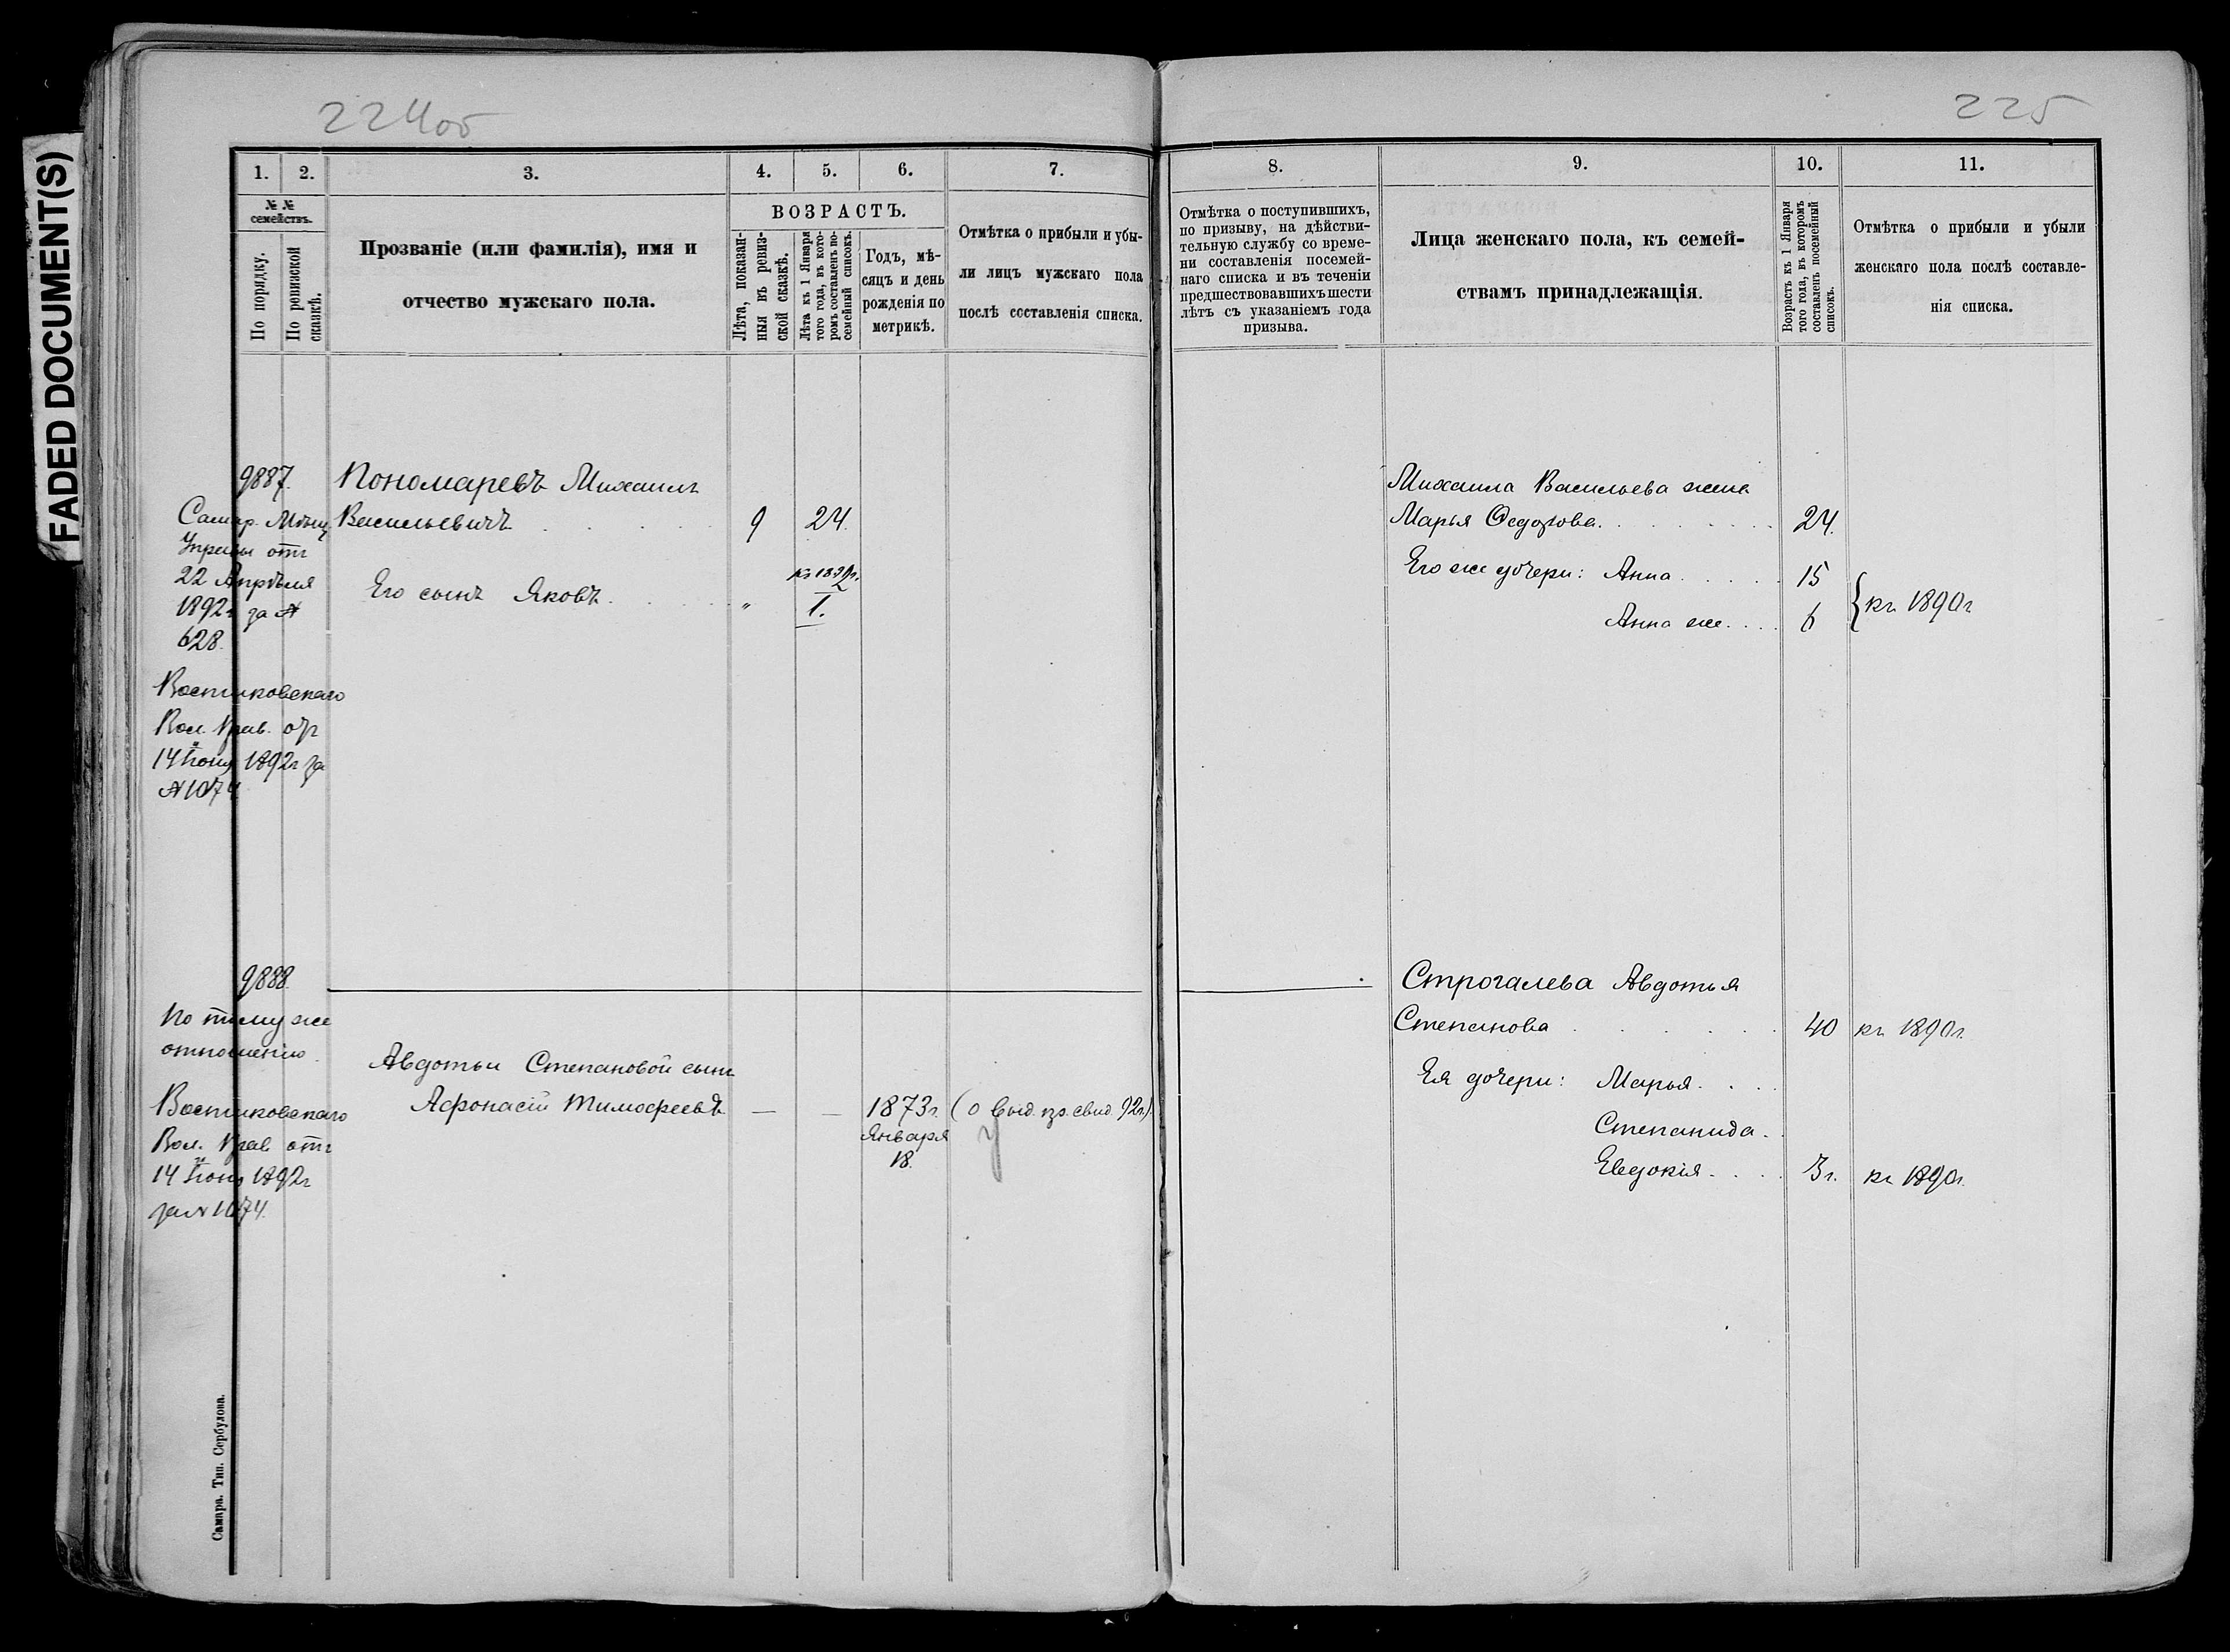 FADED DOCUMENT(S)
224об
1.
2.
3.
4.
5.
6.
7.
№ №
семействъ.
По порядку.
По ревизской
сказкѣ.
Прозваніе (или фамилія), имя и
отчество мужскаго пола.
ВОЗРАСТЪ.
Лѣта, показан-
ныя въ ревиз-
ской сказкѣ.
Лѣта къ 1 Января
того года, въ кото-
ромъ составленъ по-
семейный списокъ.
Годъ, мѣ-
сяцъ и день
рожденія по
метрикѣ.
Отмѣтка о прибыли и убы-
ли лицъ мужскаго пола
послѣ составленія списка.
9887.
Самар. Мѣщ.
Управы отъ
22 Апрѣля
1892г за №
628.
Пономаревъ Михаилъ
Васильевичъ
9
24.
Его сынъ Яковъ
"
1.
Вол. Прав. отъ
14 Іюня 1892г за
№1074
9888.
По тому же
отношенію.
Авдотьи Степановой сынъ
Афонасій Тимофеевъ
—
—
1873г.
Января
18.
Вол. Прав отъ
14 Іюня 1892г
за №1074.
Самара. Тип. Сербулова.
225
8.
9.
10.
11.
Отмѣтка о поступившихъ,
по призыву, на дѣйстви-
тельную службу со време-
ни составленія посемей-
наго списка и въ теченіи
предшествовавшихъ шести
лѣтъ съ указаніемъ года
призыва.
Лица женскаго пола, къ семей-
ствамъ принадлежащія.
Возрастъ къ 1 Января
того года, въ которомъ
составленъ посемейный
списокъ.
Отмѣтка о прибыли и убыли
женскаго пола послѣ составле-
нія списка.
Михаила Васильева жена
Марья Ѳедорова.
24.
Его же дочери: Анна
15
Анна же
6
къ 1890г
Строгалева Авдотья
Степанова
40
къ 1890г.
Ея дочери: Марья
Степанида
Евдокія
3г.
къ 1890г.